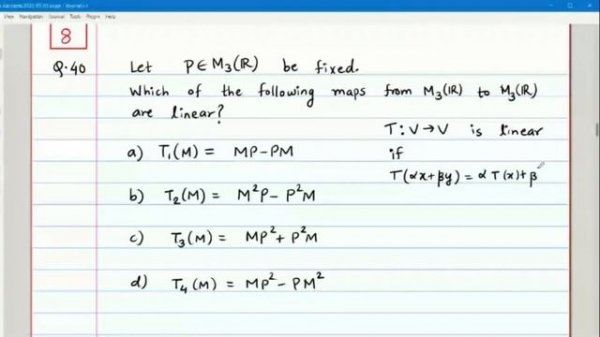 View Navigation Journal Tools Plugin Help
8
Q.40 Let P∈M₃(ℝ) be fixed.
Which of the following maps from M₃(ℝ) to M₃(ℝ)
are linear?
T:V→V is linear
if
T(αx+βy)=αT(x)+β
a) T₁(M) = MP-PM
b) T₂(M) = M²P-P²M
c) T₃(M) = MP²+P²M
d) T₄(M) = MP²-PM²